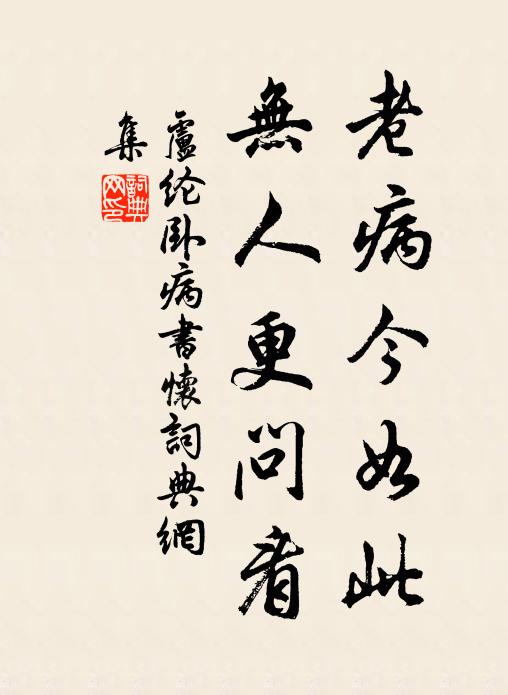 老病今如此
無人更問看
盧纶卧病書懷詞典網
集
詞典网印